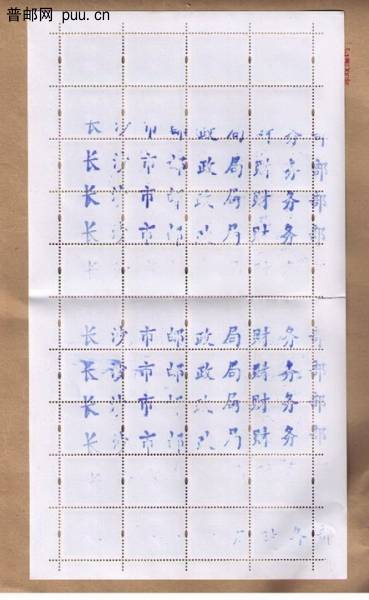 普邮网 puu.cn
长沙市邮政局财务部
长沙市邮政局财务部
长沙市邮政局财务部
长沙市邮政局财务部
长沙市邮政局财务部
长沙市邮政局财务部
长沙市邮政局财务部
长沙市邮政局财务部